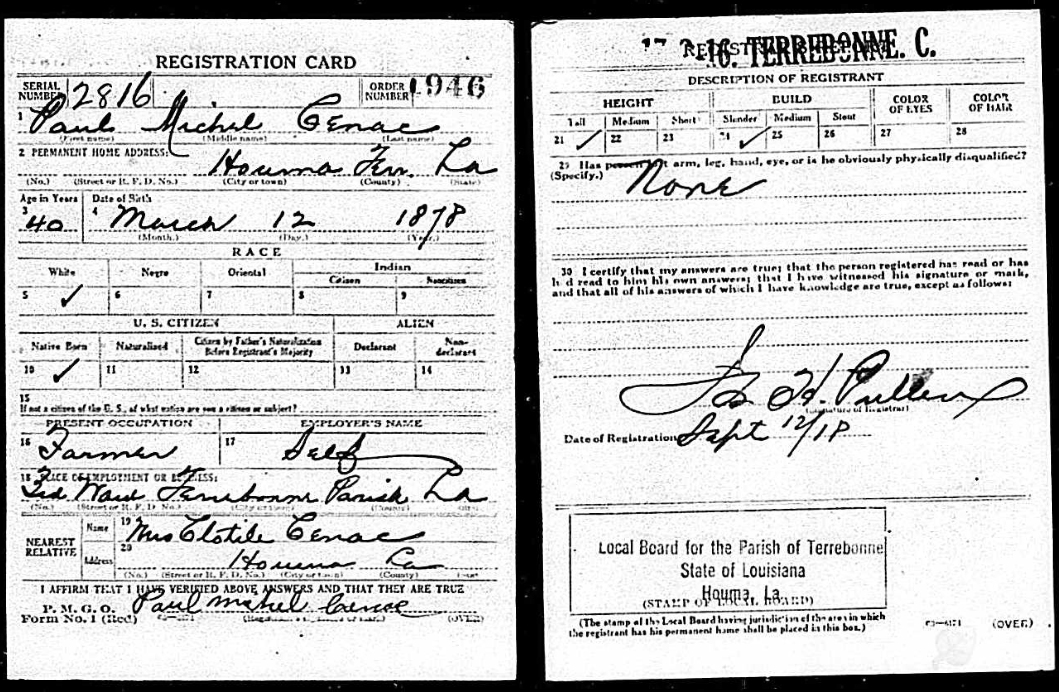 REGISTRATION CARD
SERIAL NUMBER 2816 ORDER NUMBER 1946
1 Paul Michel Cenac
(First name) (Middle name) (Last name)
2 PERMANENT HOME ADDRESS:
Houma Terr. La
(No.) (Street or R. F. D. No.) (City or town) (County) (State)
Age in Years Date of Birth
3 40 4 March 12 1878
(Month.) (Day.) (Year.)
RACE
White Negro Oriental Indian
Citizen Noncitizen
5 ✓ 6 7 8 9
U. S. CITIZEN ALIEN
Native Born Naturalized Citizen by Father's Naturalization Before Registrant's Majority Declarant Non-declarant
10 ✓ 11 12 13 14
15
If not a citizen of the U. S., of what nation are you a citizen or subject?
PRESENT OCCUPATION EMPLOYER'S NAME
16 Farmer 17 Self
18 PLACE OF EMPLOYMENT OR BUSINESS:
Ward Terrebonne Parish La
(No.) (Street or R. F. D. No.) (City or town) (County) (State)
NEAREST RELATIVE
Name 19 Mrs Clotile Cenac
Address 20 Houma La
(No.) (Street or R. F. D. No.) (City or town) (County) (State)
I AFFIRM THAT I HAVE VERIFIED ABOVE ANSWERS AND THAT THEY ARE TRUE
P. M. G. O.
Form No. 1 (Red) Paul Michel Cenac
(Registrant's signature or mark) (OVER)
REGISTRAR'S REPORT
17 2 16. TERREBONNE. C.
DESCRIPTION OF REGISTRANT
HEIGHT BUILD COLOR OF EYES COLOR OF HAIR
Tall Medium Short Slender Medium Stout
21 ✓ 22 23 24 ✓ 25 26 27 28
29 Has person lost arm, leg, hand, eye, or is he obviously physically disqualified?
(Specify.) None
30 I certify that my answers are true; that the person registered has read or has
had read to him his own answers; that I have witnessed his signature or mark,
and that all of his answers of which I have knowledge are true, except as follows:
H. Pullen
(Signature of Registrar)
Date of Registration Sept 12/18
Local Board for the Parish of Terrebonne
State of Louisiana
Houma, La.
(STAMP OF LOCAL BOARD)
(The stamp of the Local Board having jurisdiction of the area in which
the registrant has his permanent home shall be placed in this box.)
(OVER)